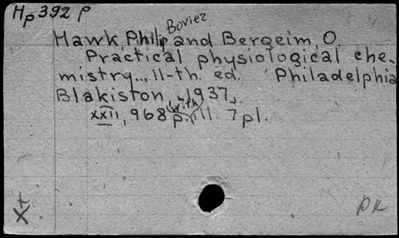 Hp392 P
Bovier
Hawk, Philip and Bergeim, O.
Practical physiological che-
mistry... 11-th. ed. Philadelphia
Blakiston, 1937.
with
xxii, 968 p. ill. 7 pl.